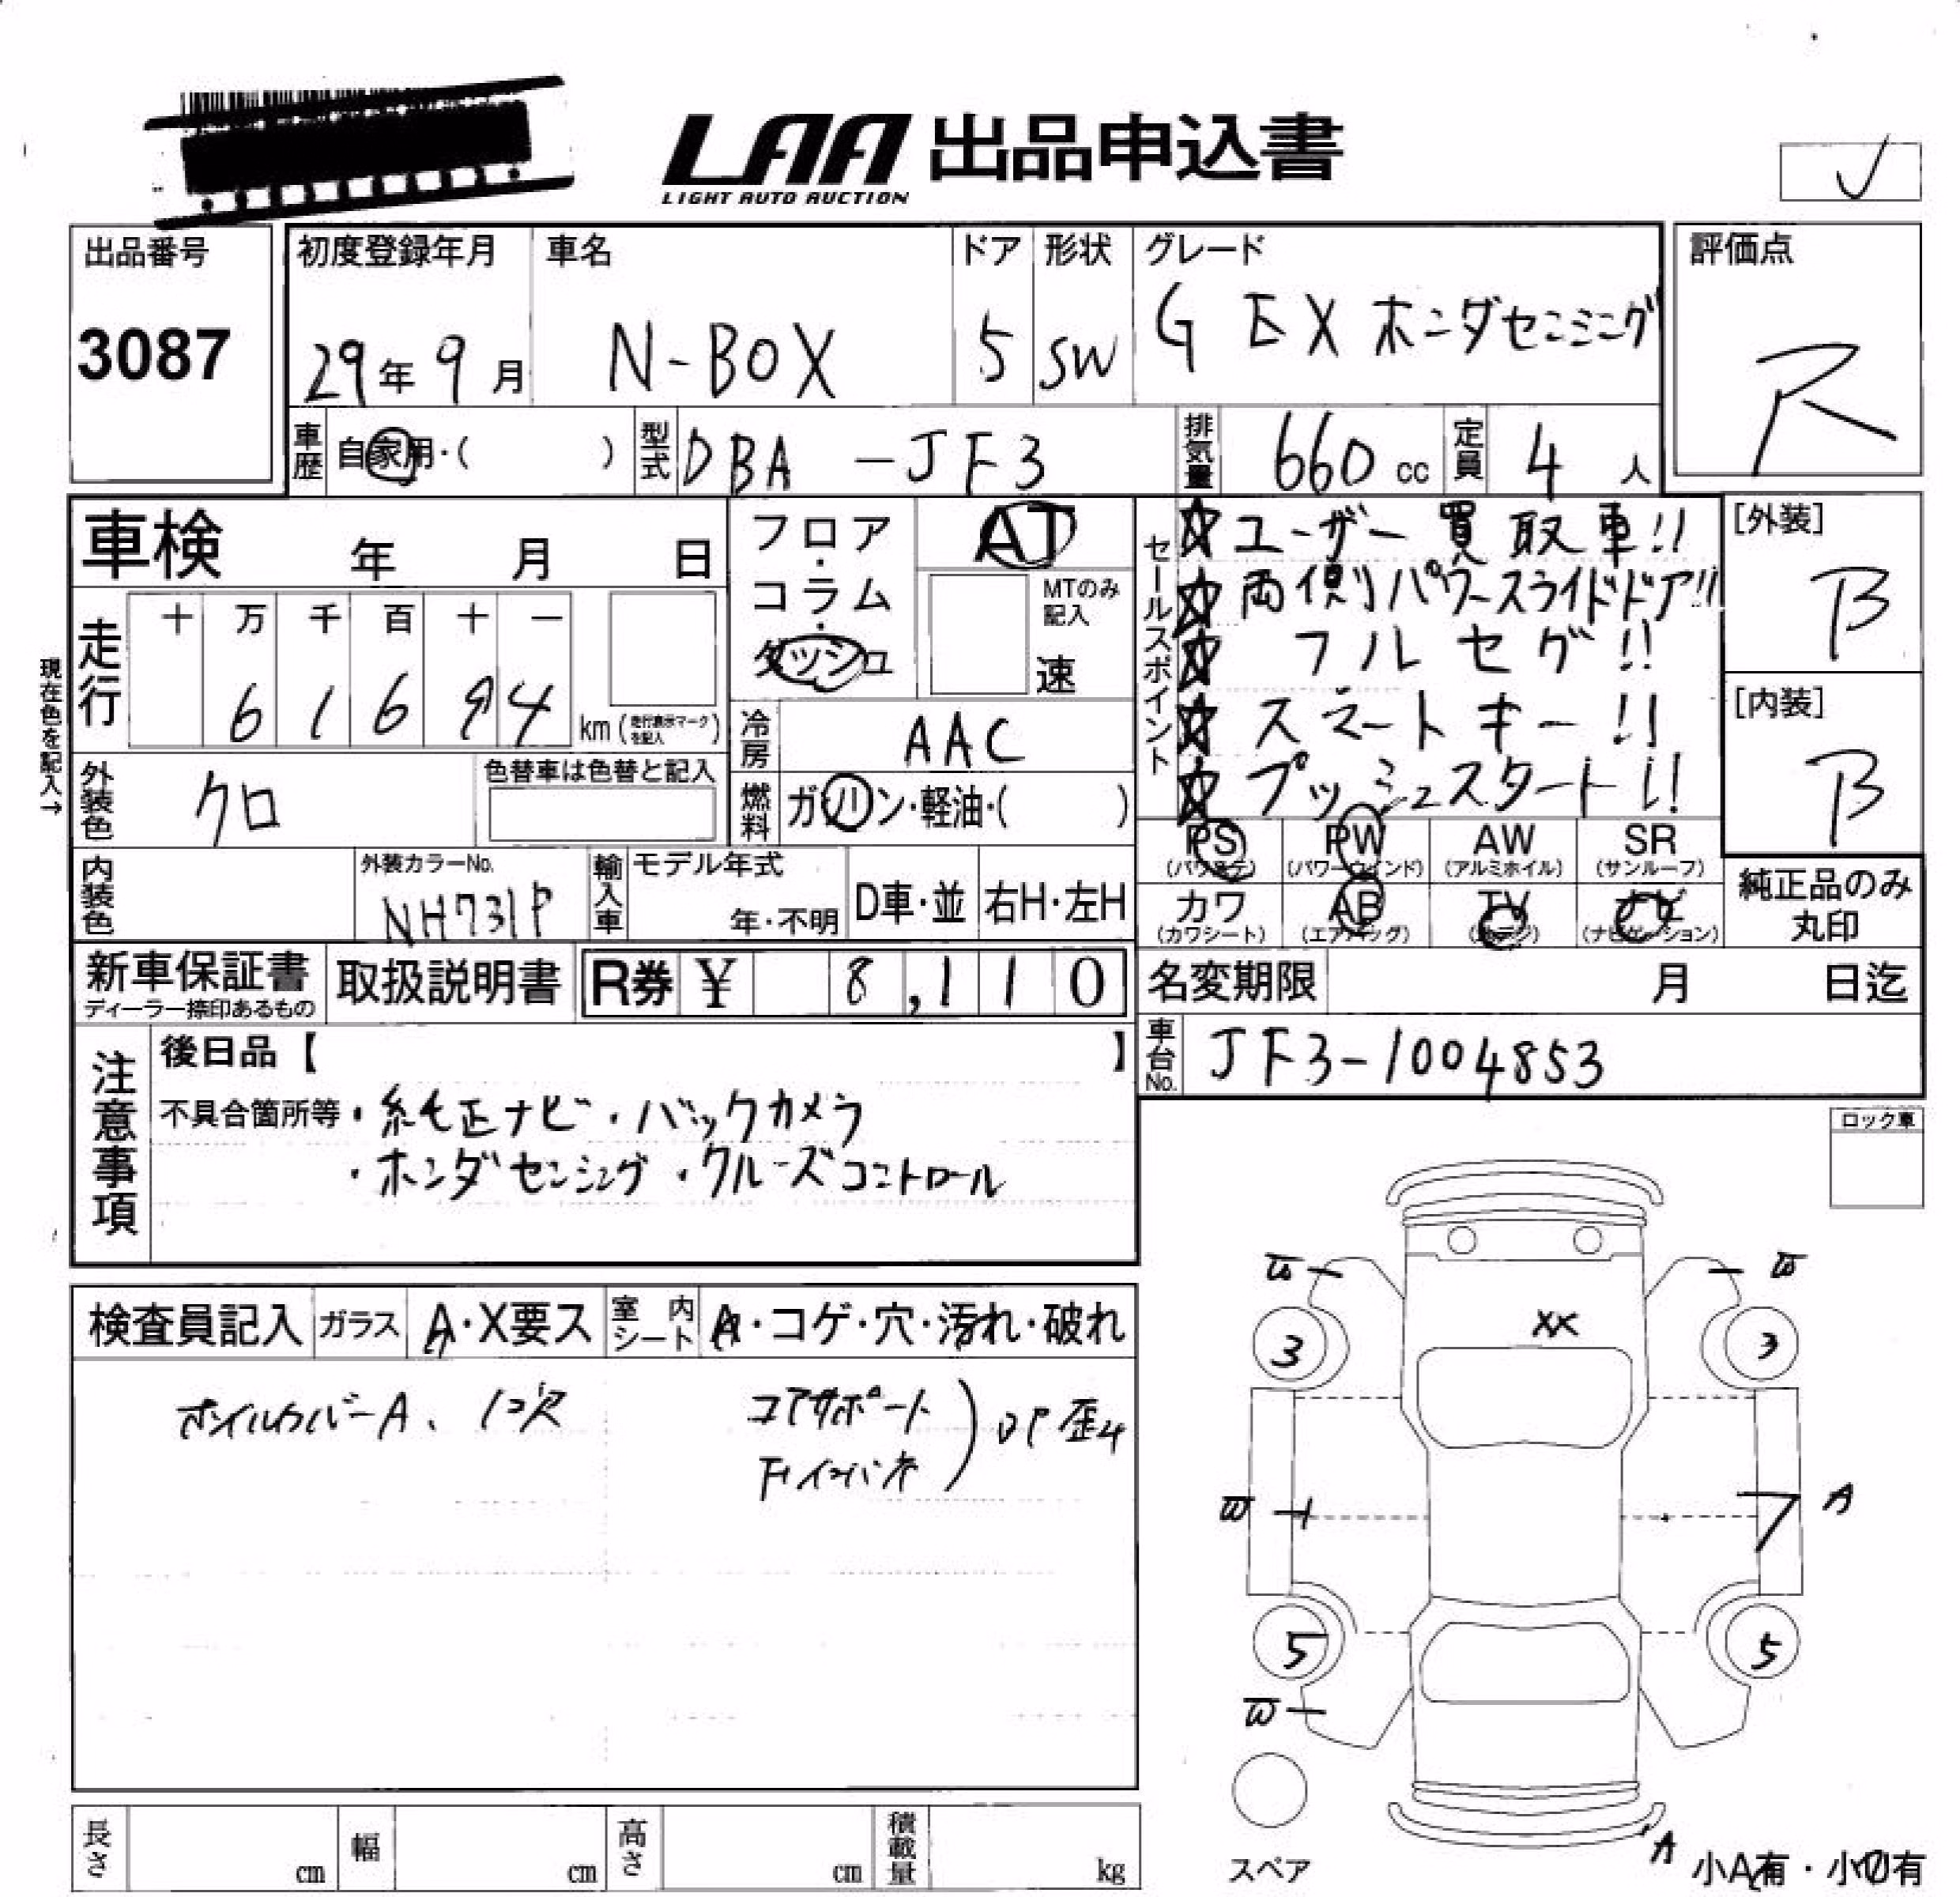 LAA 出品申込書
LIGHT AUTO AUCTION
出品番号
3087
初度登録年月
29年9月
車名
N-BOX
ドア
5
形状
SW
グレード
G EX ホンダセンシング
評価点
R
車歴 自家用・( )
型式 DBA -JF3
排気量 660 cc
定員 4 人
車検 年 月 日
フロア・コラム・ダッシュ
AT
MTのみ記入
速
セールスポイント
☆ユーザー買取車!!
☆両側パワースライドドア!!
☆フルセグ!!
☆スマートキー!!
☆プッシュスタート!!
[外装]
B
[内装]
B
現在色を記入→
走行
十 万 千 百 十 一
6 1 6 9 4
km(走行表示マークを記入)
冷房 AAC
外装色 クロ
色替車は色替と記入
燃料 ガソリン・軽油・( )
PS (パワステ)
PW (パワーウインド)
AW (アルミホイル)
SR (サンルーフ)
カワ (カワシート)
AB (エアバッグ)
TV (地デジ)
ナビ (ナビゲーション)
純正品のみ
丸印
内装色
外装カラーNo.
NH731P
輸入車 モデル年式
年・不明
D車・並
右H・左H
新車保証書
ディーラー捺印あるもの
取扱説明書
R券 ¥ 8,110
名変期限 月 日迄
車台No. JF3-1004853
注意事項
後日品【 】
不具合箇所等・純正ナビ・バックカメラ
・ホンダセンシング・クルーズコントロール
ロック車
検査員記入
ガラス A・X要ス
室内シート A・コゲ・穴・汚れ・破れ
ホイルカバーA、1コ欠
コアサポート
Fインパネ
) UP歪み
W
W
XX
3
3
W
A
5
5
W
スペア
A
小A有・小U有
長さ cm
幅 cm
高さ cm
積載量 kg